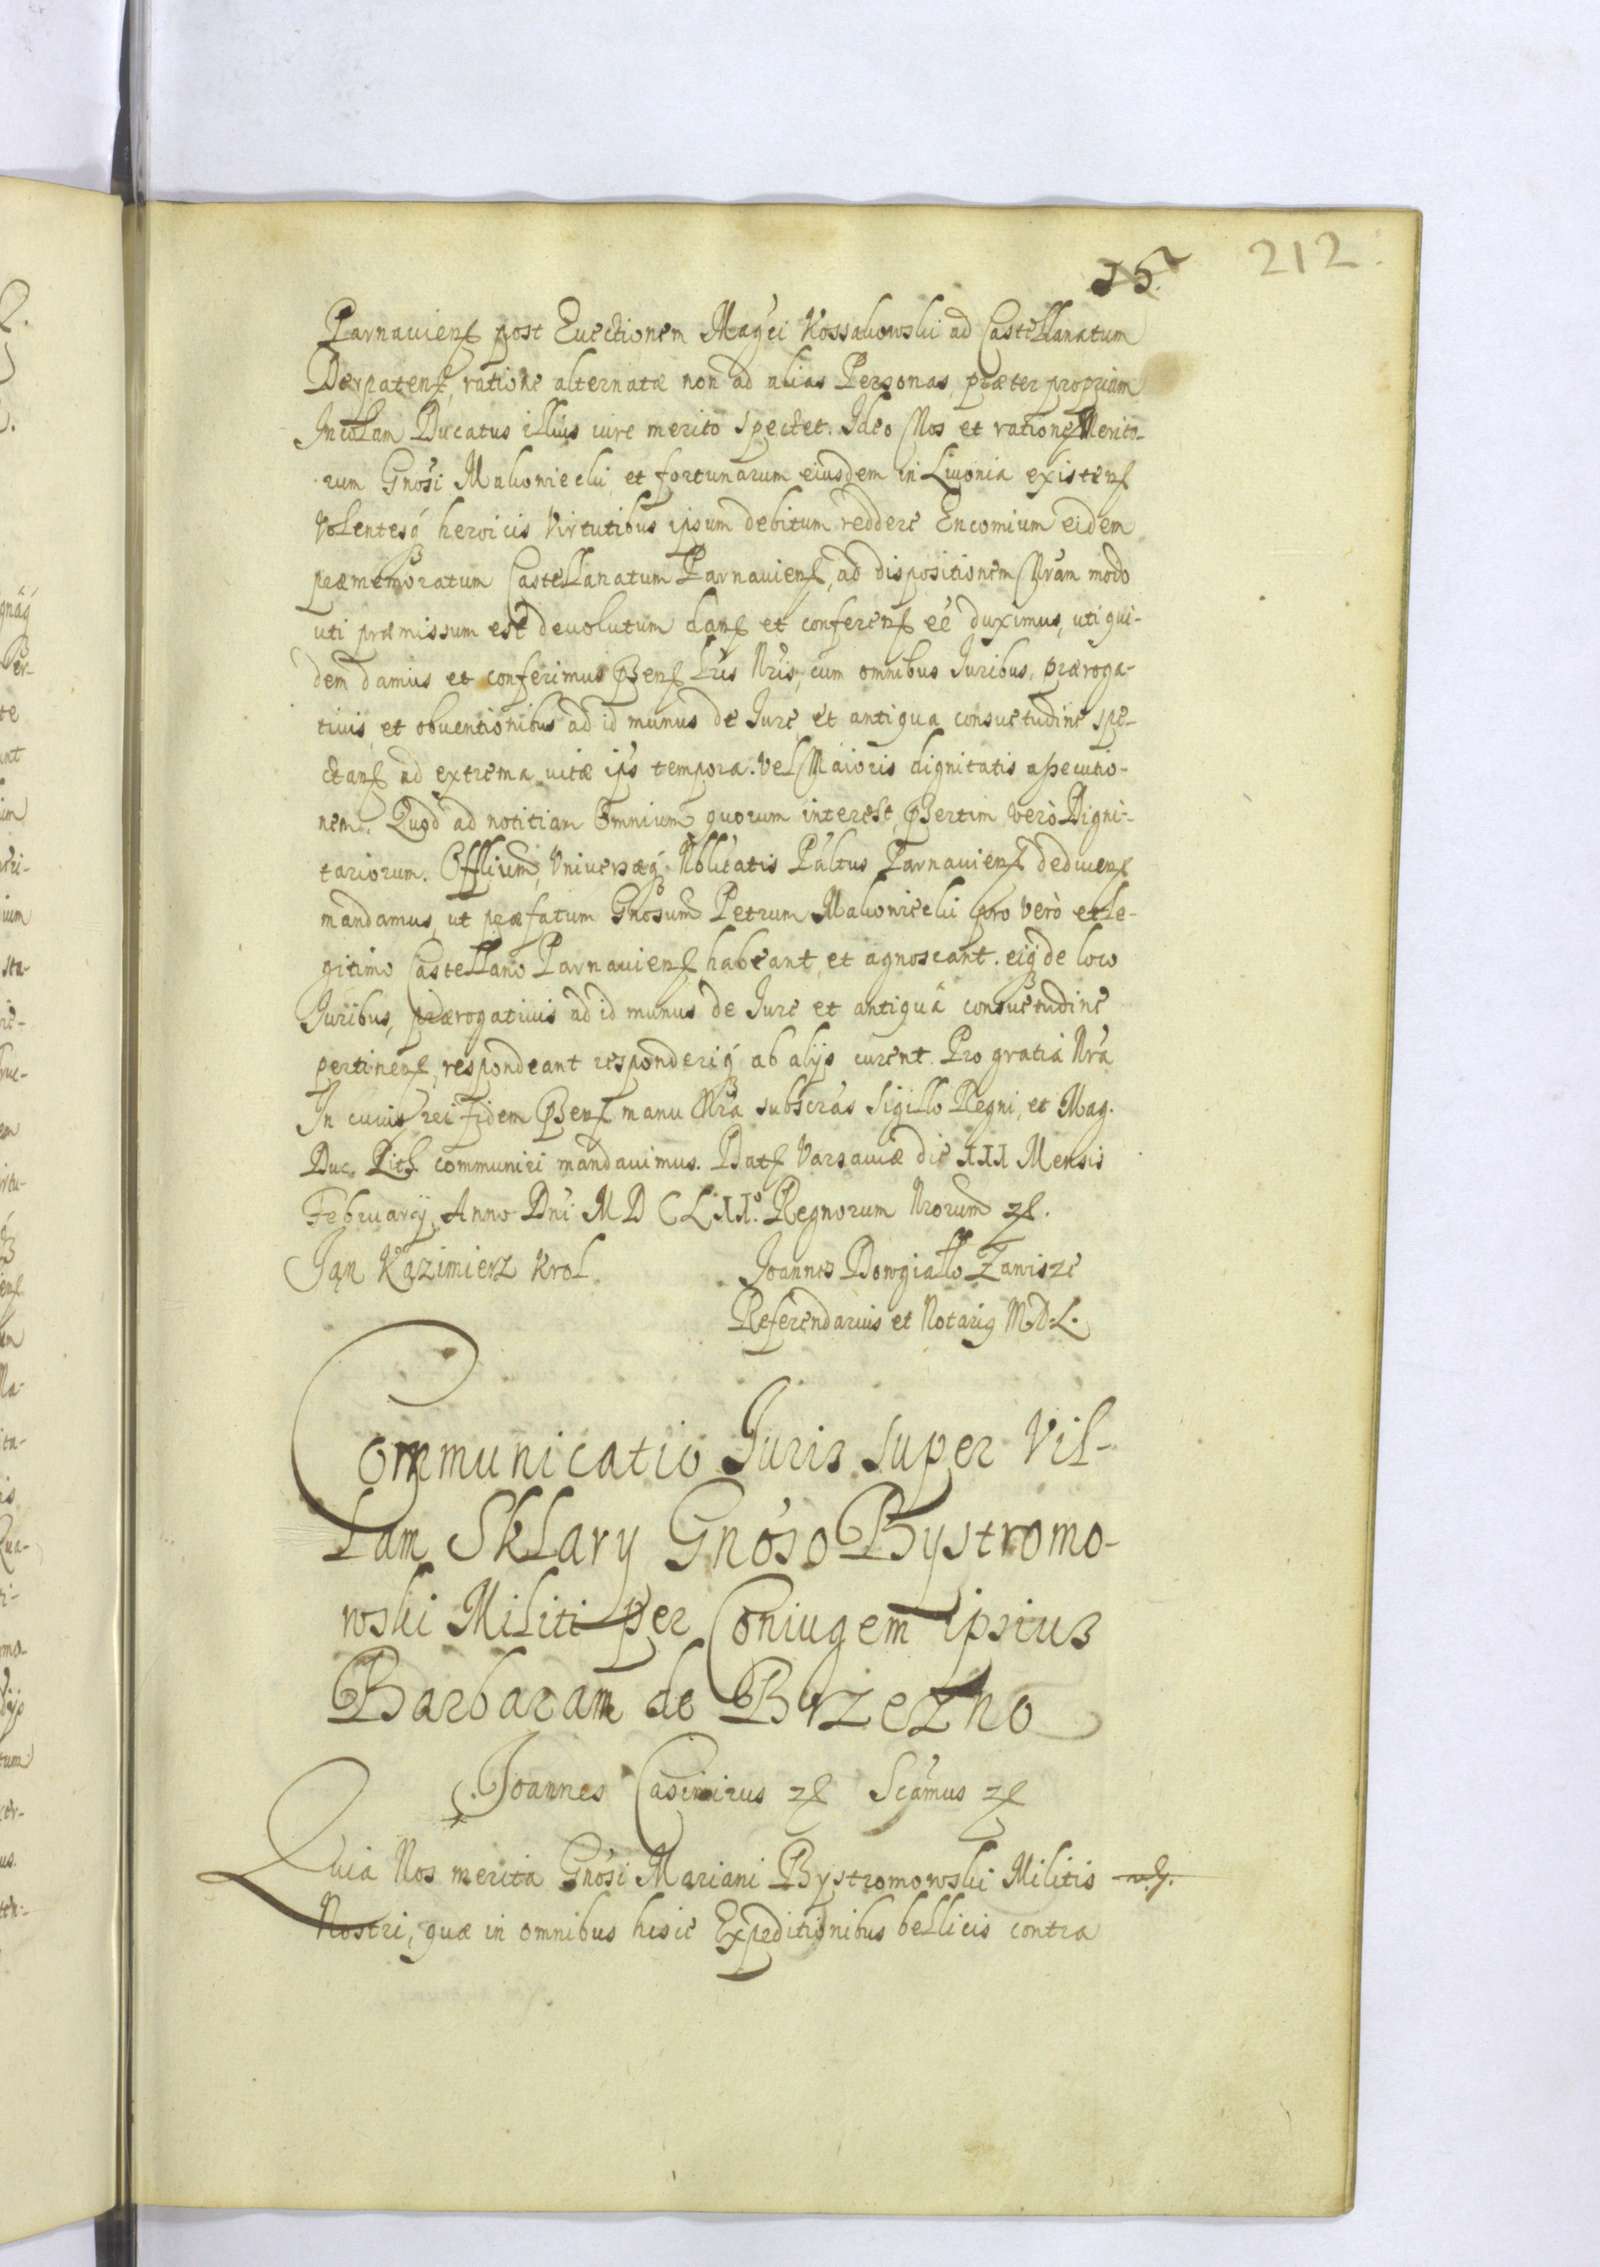 15.
212.
Parnauiens post Euectionem Mag̃ci Kossakowski ad Castellanatum
Derpatens, ratione alternatæ non ad alias Personas, præter propriam
Incolam Ducatus illius iure merito spectet. Ideo Nos et ratione Merito-
rum Gnosi Makowiecki, et fortunarum eiusdem in Liuonia existens
Volentesq heroicis Virtutibus ipsum debitum reddere Encomium eidem
præmemoratum Castellanatum Parnauiens, ad dispositionem Nram modo
uti præmissum est deuolutum dans et conferens eé duximus, uti qui-
dem damus et conferimus pñens Lris Nris, cum omnibus Iuribus, præroga-
tiuis, et obuentionibus ad id munus de Iure et antiqua consuetudine spe-
ctans ad extrema vitæ ips tempora. Vel Maioris dignitatis assecutio-
nem. Quod ad notitiam Omnium quorum interest, pñertim verò Digni-
tariorum. Offlium, Vniversæq Nblitatis Pältus Parnauiens deducens
mandamus, ut præfatum Gnosum Petrum Makowiecki pro verò et le-
gitimo Castellano Parnauiens habeant, et agnoscant. eiq de loco
Iuribus, prærogatiuis ad id munus de Iure et antiquâ consuetudine
pertinens, respondeant responderiq ab alijs curent. Pro gratia Nrã
In cuius rei fidem pñens manu Nrã subscrãs Sigillo Regni, et Mag.
Duc. Lith communiri mandauimus. Dats Varsauiæ die III Mensis
February Anno Dni MDCLII.° Regnorum Nrorum zc.
Jan Kazimierz Krol
Joannes Dowgiallo Zawisze
Referendarius et Notarig MDL.
Communicatio Iuris super Vil-
lam Sklary Gnóso Bystromo-
wski Militi per Coniugem ipsius
Barbaram de Brzezno
Joannes Casimirus zc Scãmus zc
Quia Nos merita Gnósi Mariani Bystromowski Militis
Nostri, quæ in omnibus hisce Expeditionibus bellicis contra